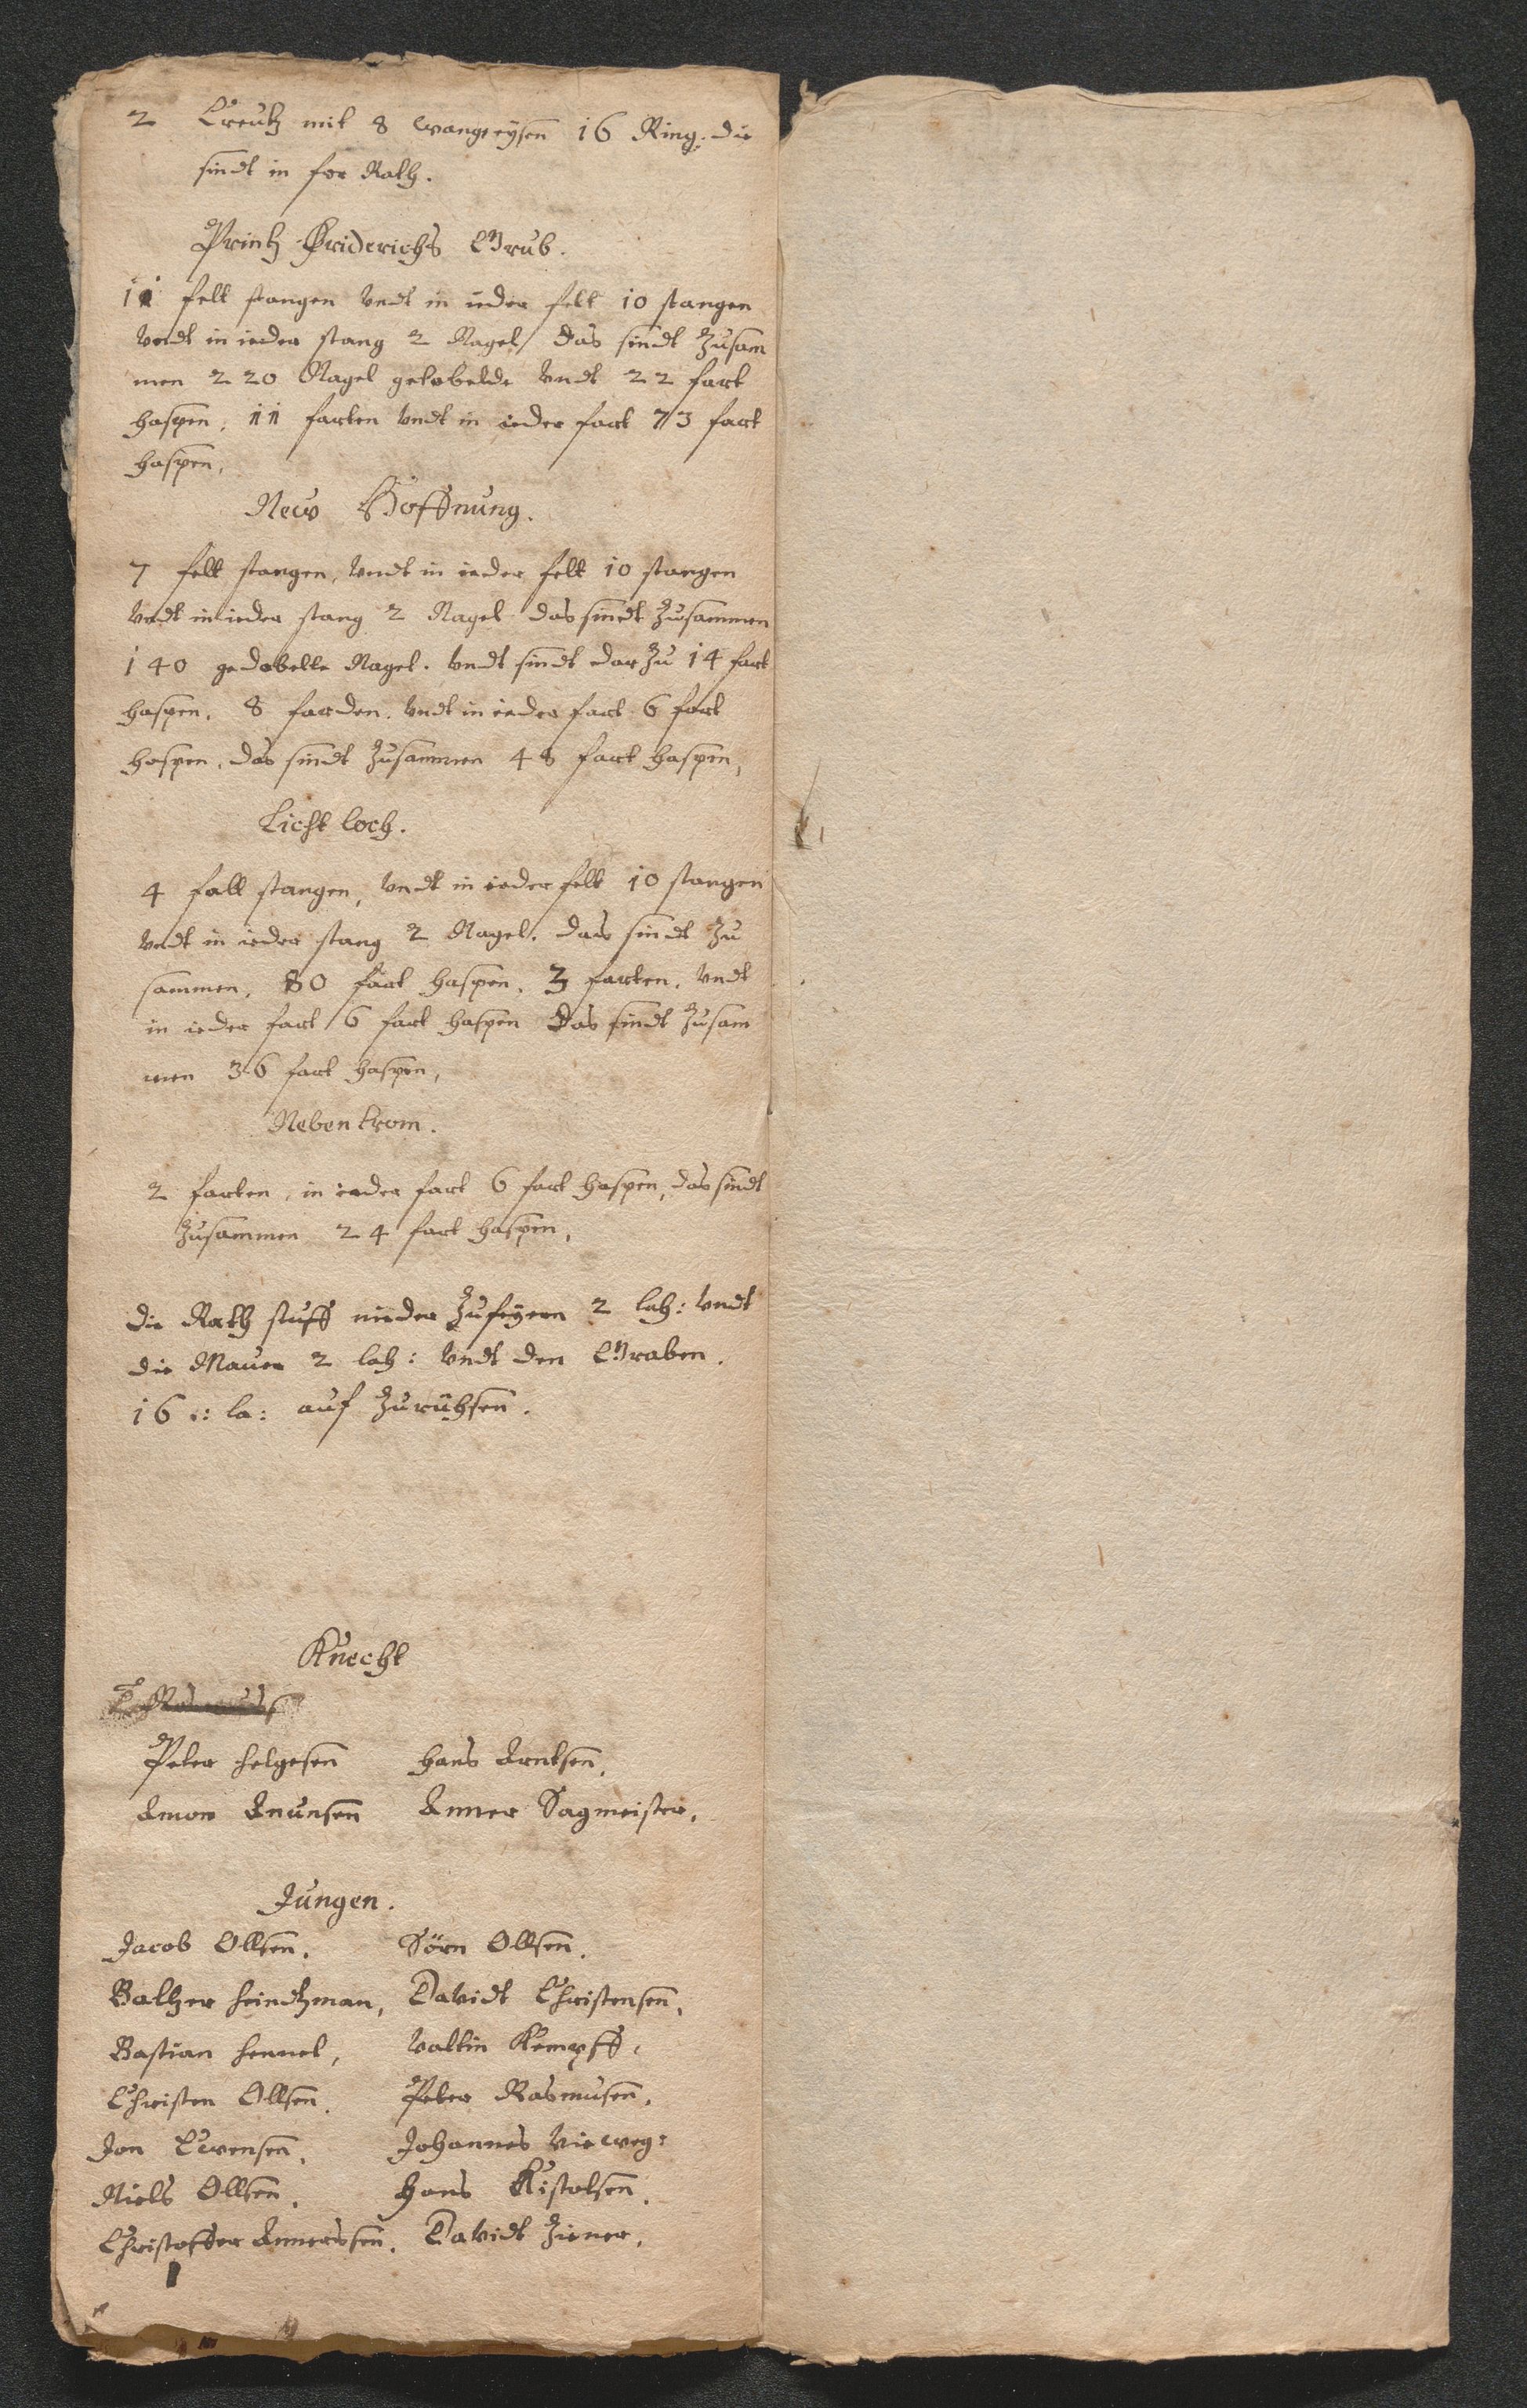 2 Creutz mit 8 wang eysen 16 Ring. die
sindt in for Rath.
Printz Friderichs Grub.
11 felt stangen vndt in ieder felt 10 stangen
vndt in ieder stang 2 Nagel, das sindt zusam
men 220 Nagel gedobelde vndt 22 fart
haspen, 11 farten vndt in ieder fart 73 fart
haspen,
New Hoffnung.
7 felt stangen, vndt in ieder felt 10 stangen
vndt in ieder stang 2 Nagel das sindt zusammen
140 gedobelte Nagel. vndt sindt dar zu 14 fart
haspen, 8 farden. vndt in ieder fart 6 fart
haspen, das sindt zusammen 48 fart haspen,
Licht loch.
4 falt stangen, vndt in ieder felt 10 stangen
vndt in ieder stang 2 Nagel. das sindt zu
sammen, 80 fart haspen, 3 farten, vndt
in ieder fart 6 fart haspen das sindt zusam
men 36 fart haspen,
Neben trom.
2 farten, in ieder fart 6 fart haspen, das sindt
zusammen 24 fart haspen,
die Rath stuff nieder 2 lah: vndt
die Mauer 2 lah: vndt den Graben.
16 :: la: auf
Knecht
Peter Helgesen Hans Erntsen,
Emon Knunsen Enner Sagmeister,
Jungen.
Jacob Ollsen, Sörn Ollsen,
Baltzer Heindtzman, Davidt Christensen,
Bastian Hennel, Valtin Kempff,
Christen Ollsen, Peter Rasmusen,
Jon Ewensen, Johannes Vieweg:
Niels Ollsen, Hans Kistolsen,
ChristofferEnnerssen, Davidt Ziener,